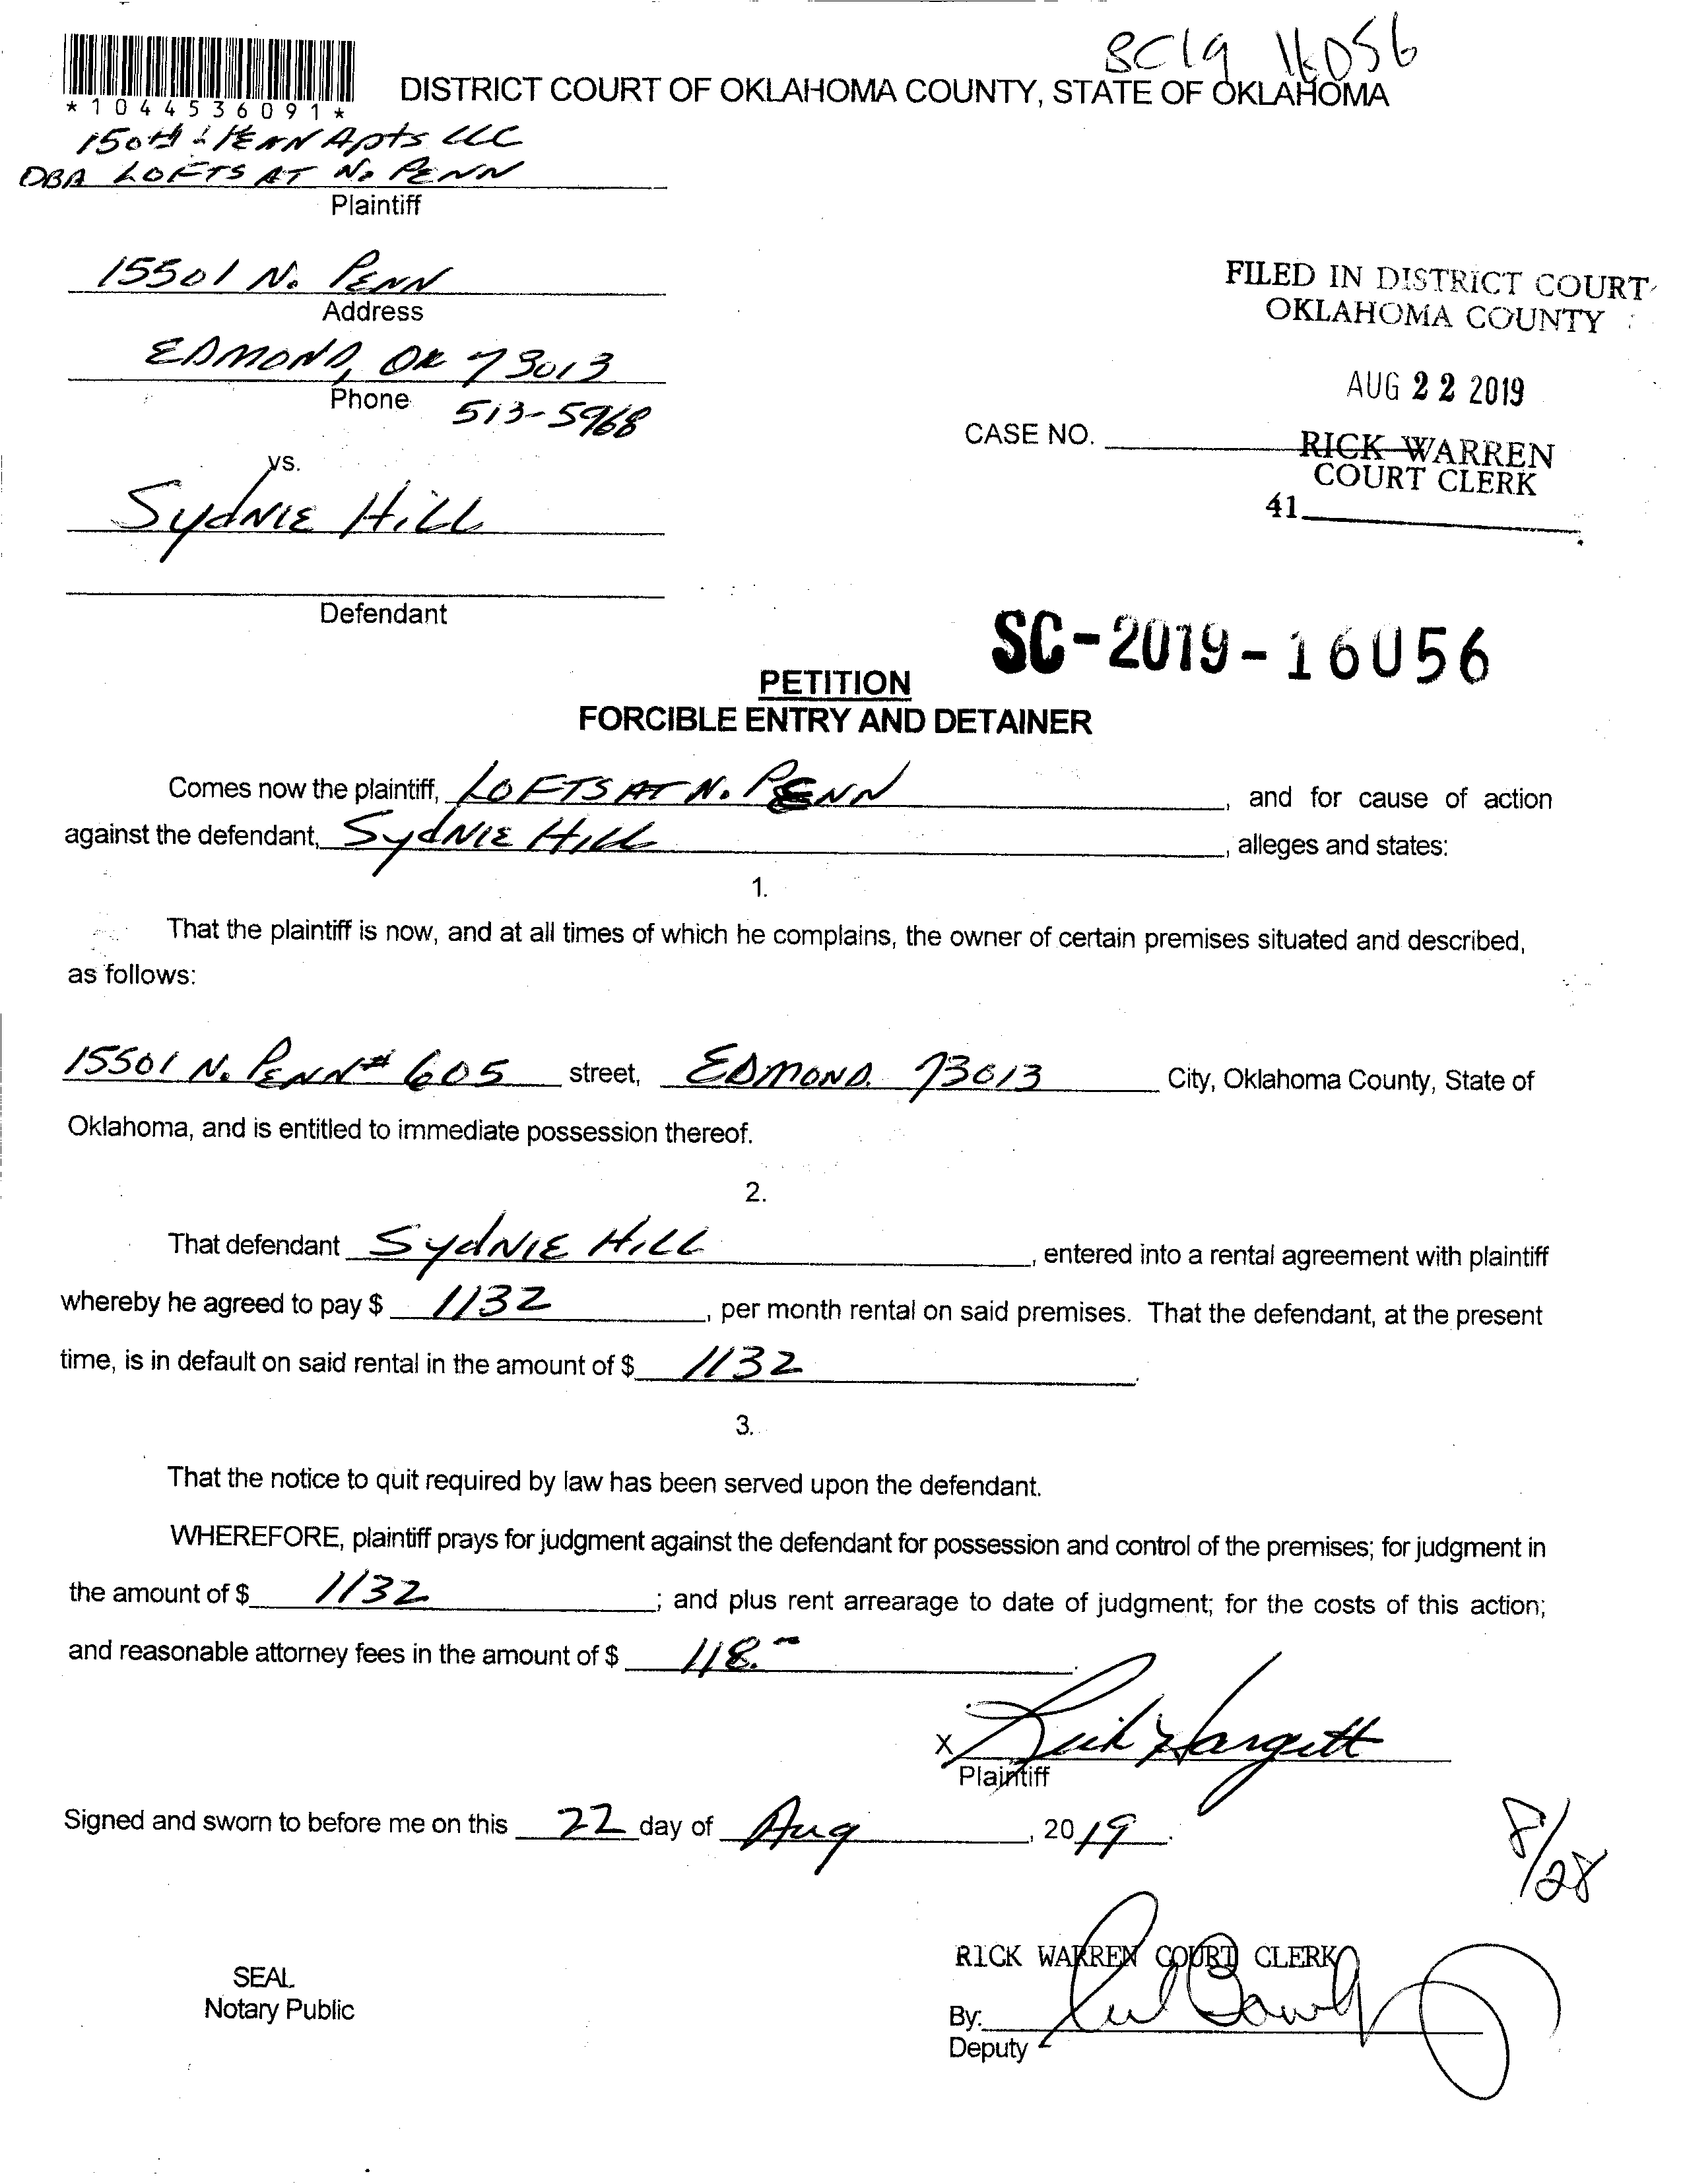 SC19 16056
*1044536091*
DISTRICT COURT OF OKLAHOMA COUNTY, STATE OF OKLAHOMA
150th & PENN Apts LLC
DBA LOFTS AT No PENN
Plaintiff
15501 N. PENN
Address
EDMOND, OK 73013
Phone 513-5968
FILED IN DISTRICT COURT
OKLAHOMA COUNTY
AUG 22 2019
CASE NO.
RICK WARREN
COURT CLERK
41
vs.
SydNIE HiLL
Defendant
SC-2019-16056
PETITION
FORCIBLE ENTRY AND DETAINER
Comes now the plaintiff, LOFTS AT N. PENN, and for cause of action
against the defendant, SydNIE HiLL, alleges and states:
1.
That the plaintiff is now, and at all times of which he complains, the owner of certain premises situated and described,
as follows:
15501 N. PENN # 605 street, EDMOND. 73013 City, Oklahoma County, State of
Oklahoma, and is entitled to immediate possession thereof.
2.
That defendant SydNIE HiLL, entered into a rental agreement with plaintiff
whereby he agreed to pay $ 1132, per month rental on said premises. That the defendant, at the present
time, is in default on said rental in the amount of $ 1132.
3.
That the notice to quit required by law has been served upon the defendant.
WHEREFORE, plaintiff prays for judgment against the defendant for possession and control of the premises; for judgment in
the amount of $ 1132; and plus rent arrearage to date of judgment; for the costs of this action;
and reasonable attorney fees in the amount of $ 118.-
X Rick Hargett
Plaintiff
Signed and sworn to before me on this 22 day of Aug, 2019.
8/28
RICK WARREN COURT CLERK
SEAL
Notary Public
By:
Deputy